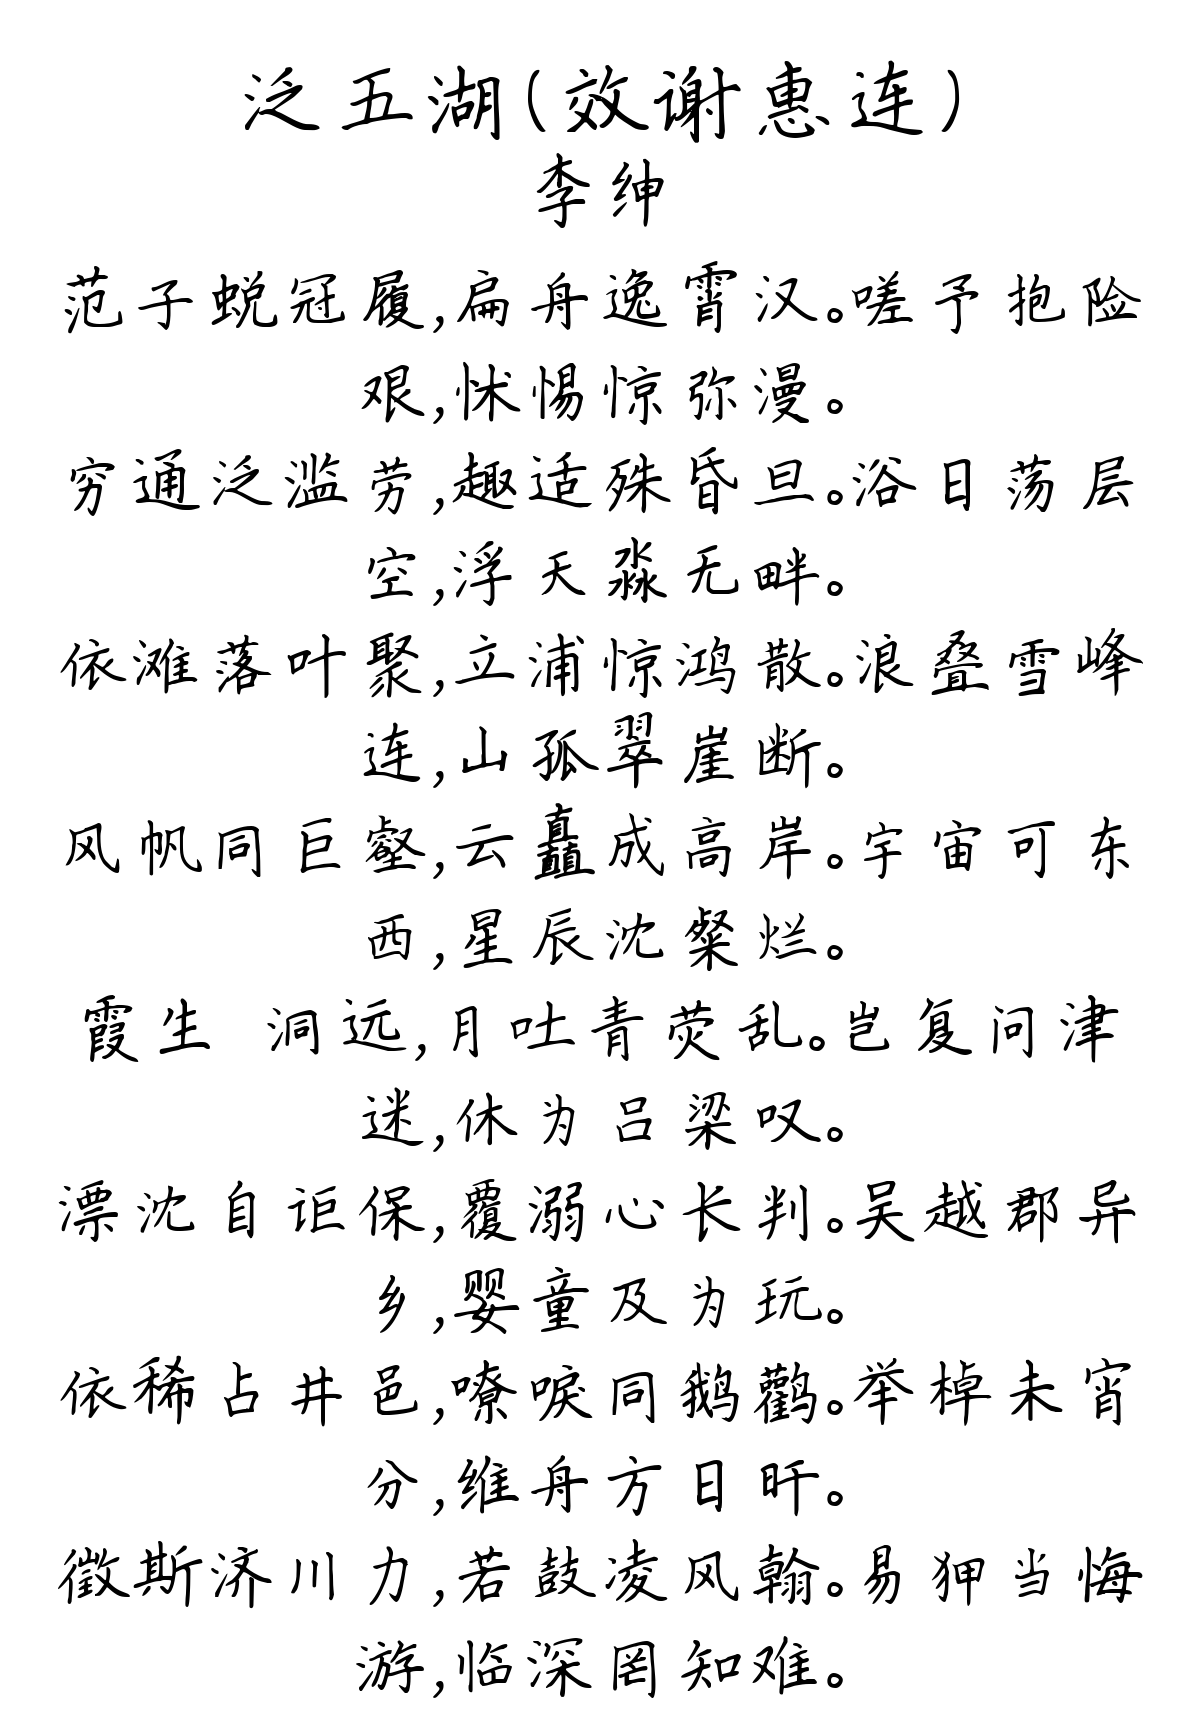 泛五湖(效谢惠连)
李绅
范子蜕冠履,扁舟逸霄汉。嗟予抱险
艰,怵惕惊弥漫。
穷通泛滥劳,趣适殊昏旦。浴日荡层
空,浮天淼无畔。
依滩落叶聚,立浦惊鸿散。浪叠雪峰
连,山孤翠崖断。
风帆同巨壑,云矗成高岸。宇宙可东
西,星辰沈粲烂。
霞生 洞远,月吐青荧乱。岂复问津
迷,休为吕梁叹。
漂沈自讵保,覆溺心长判。吴越郡异
乡,婴童及为玩。
依稀占井邑,嘹唳同鹅鹳。举棹未宵
分,维舟方日旰。
徵斯济川力,若鼓凌风翰。易狎当悔
游,临深罔知难。